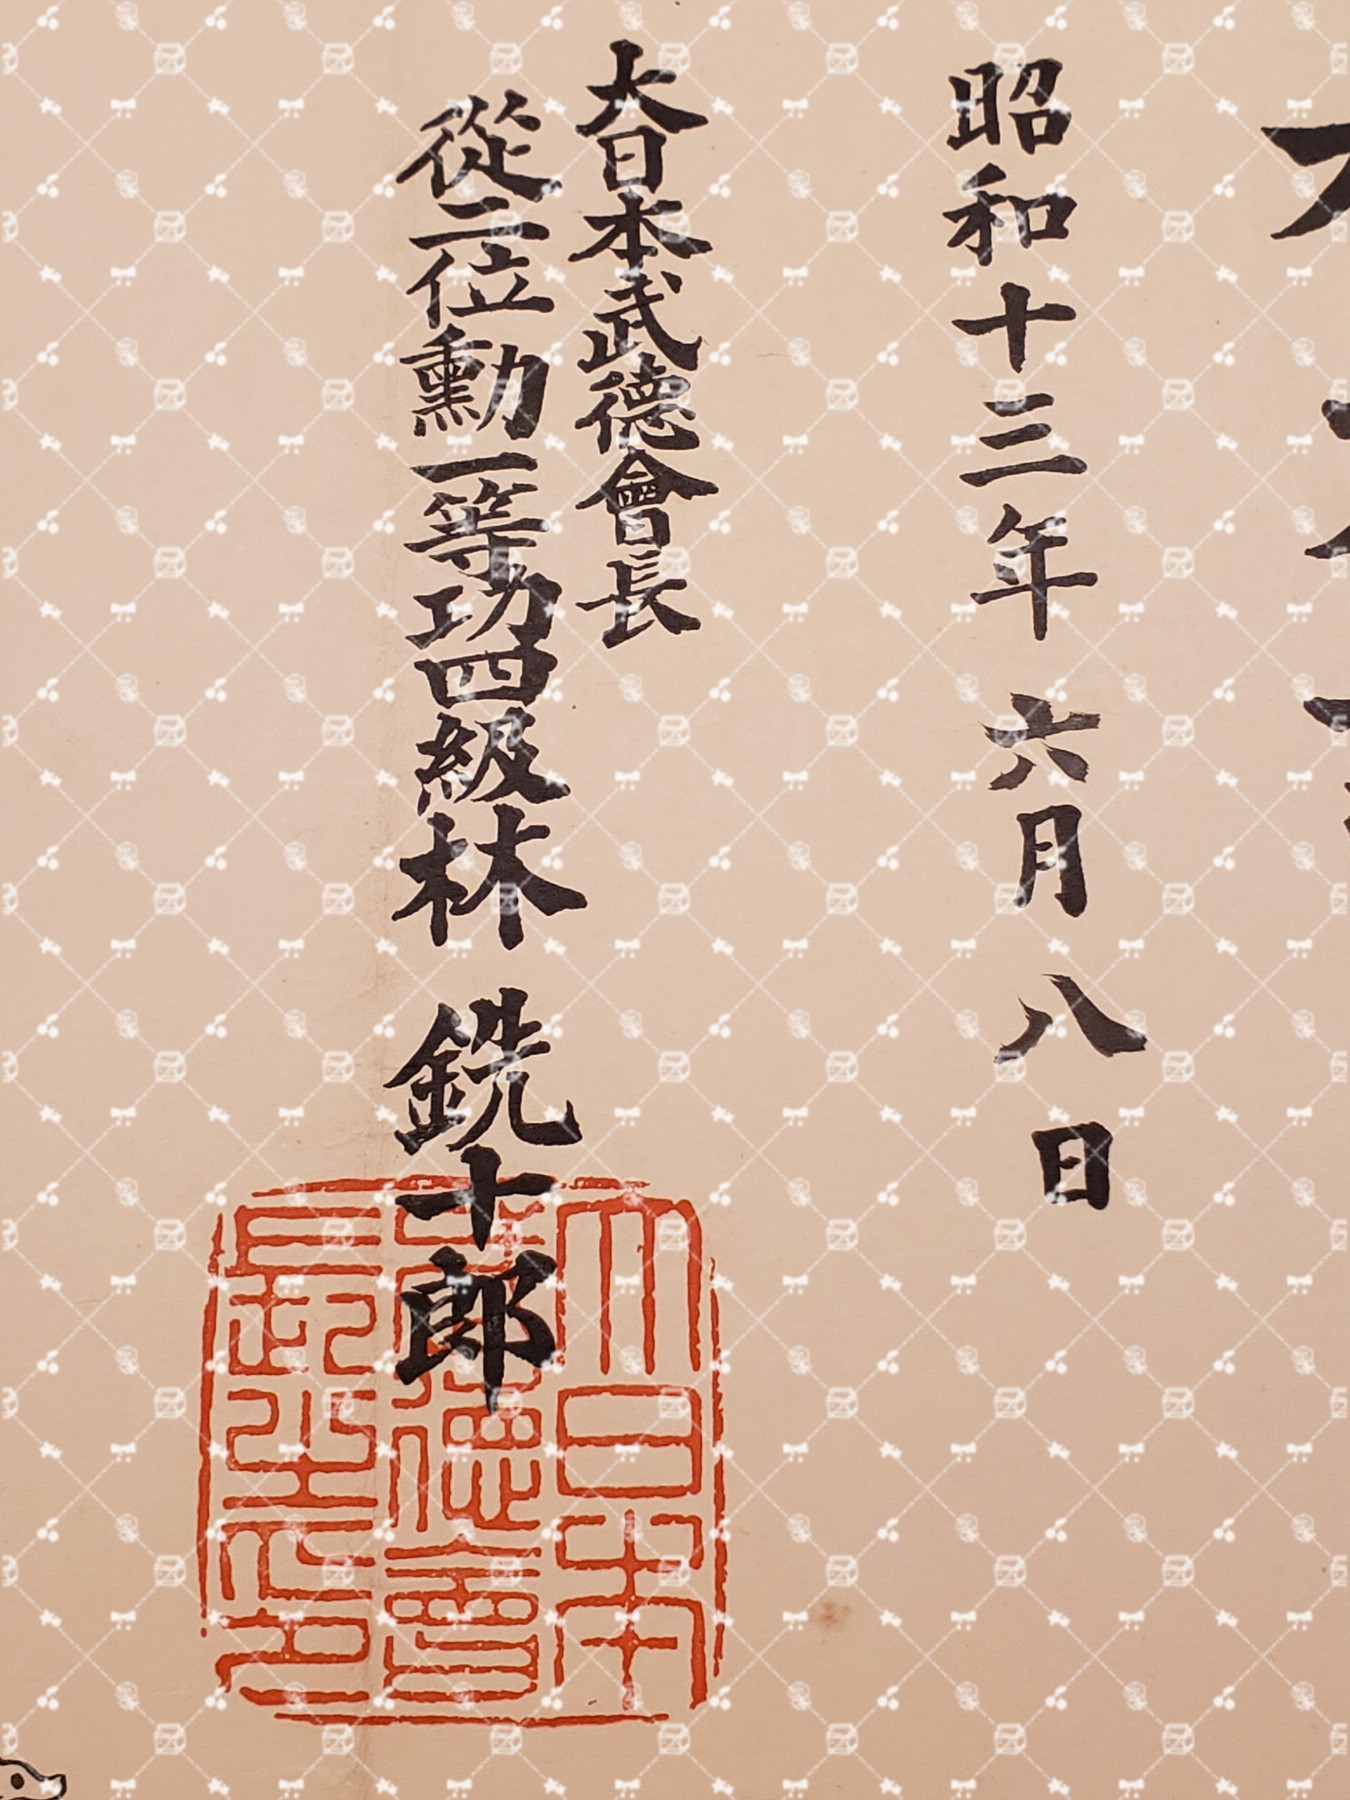 昭和十三年六月八日
大日本武德會長
從二位勳一等功四級林銑十郎
大日本
武德會
長之印